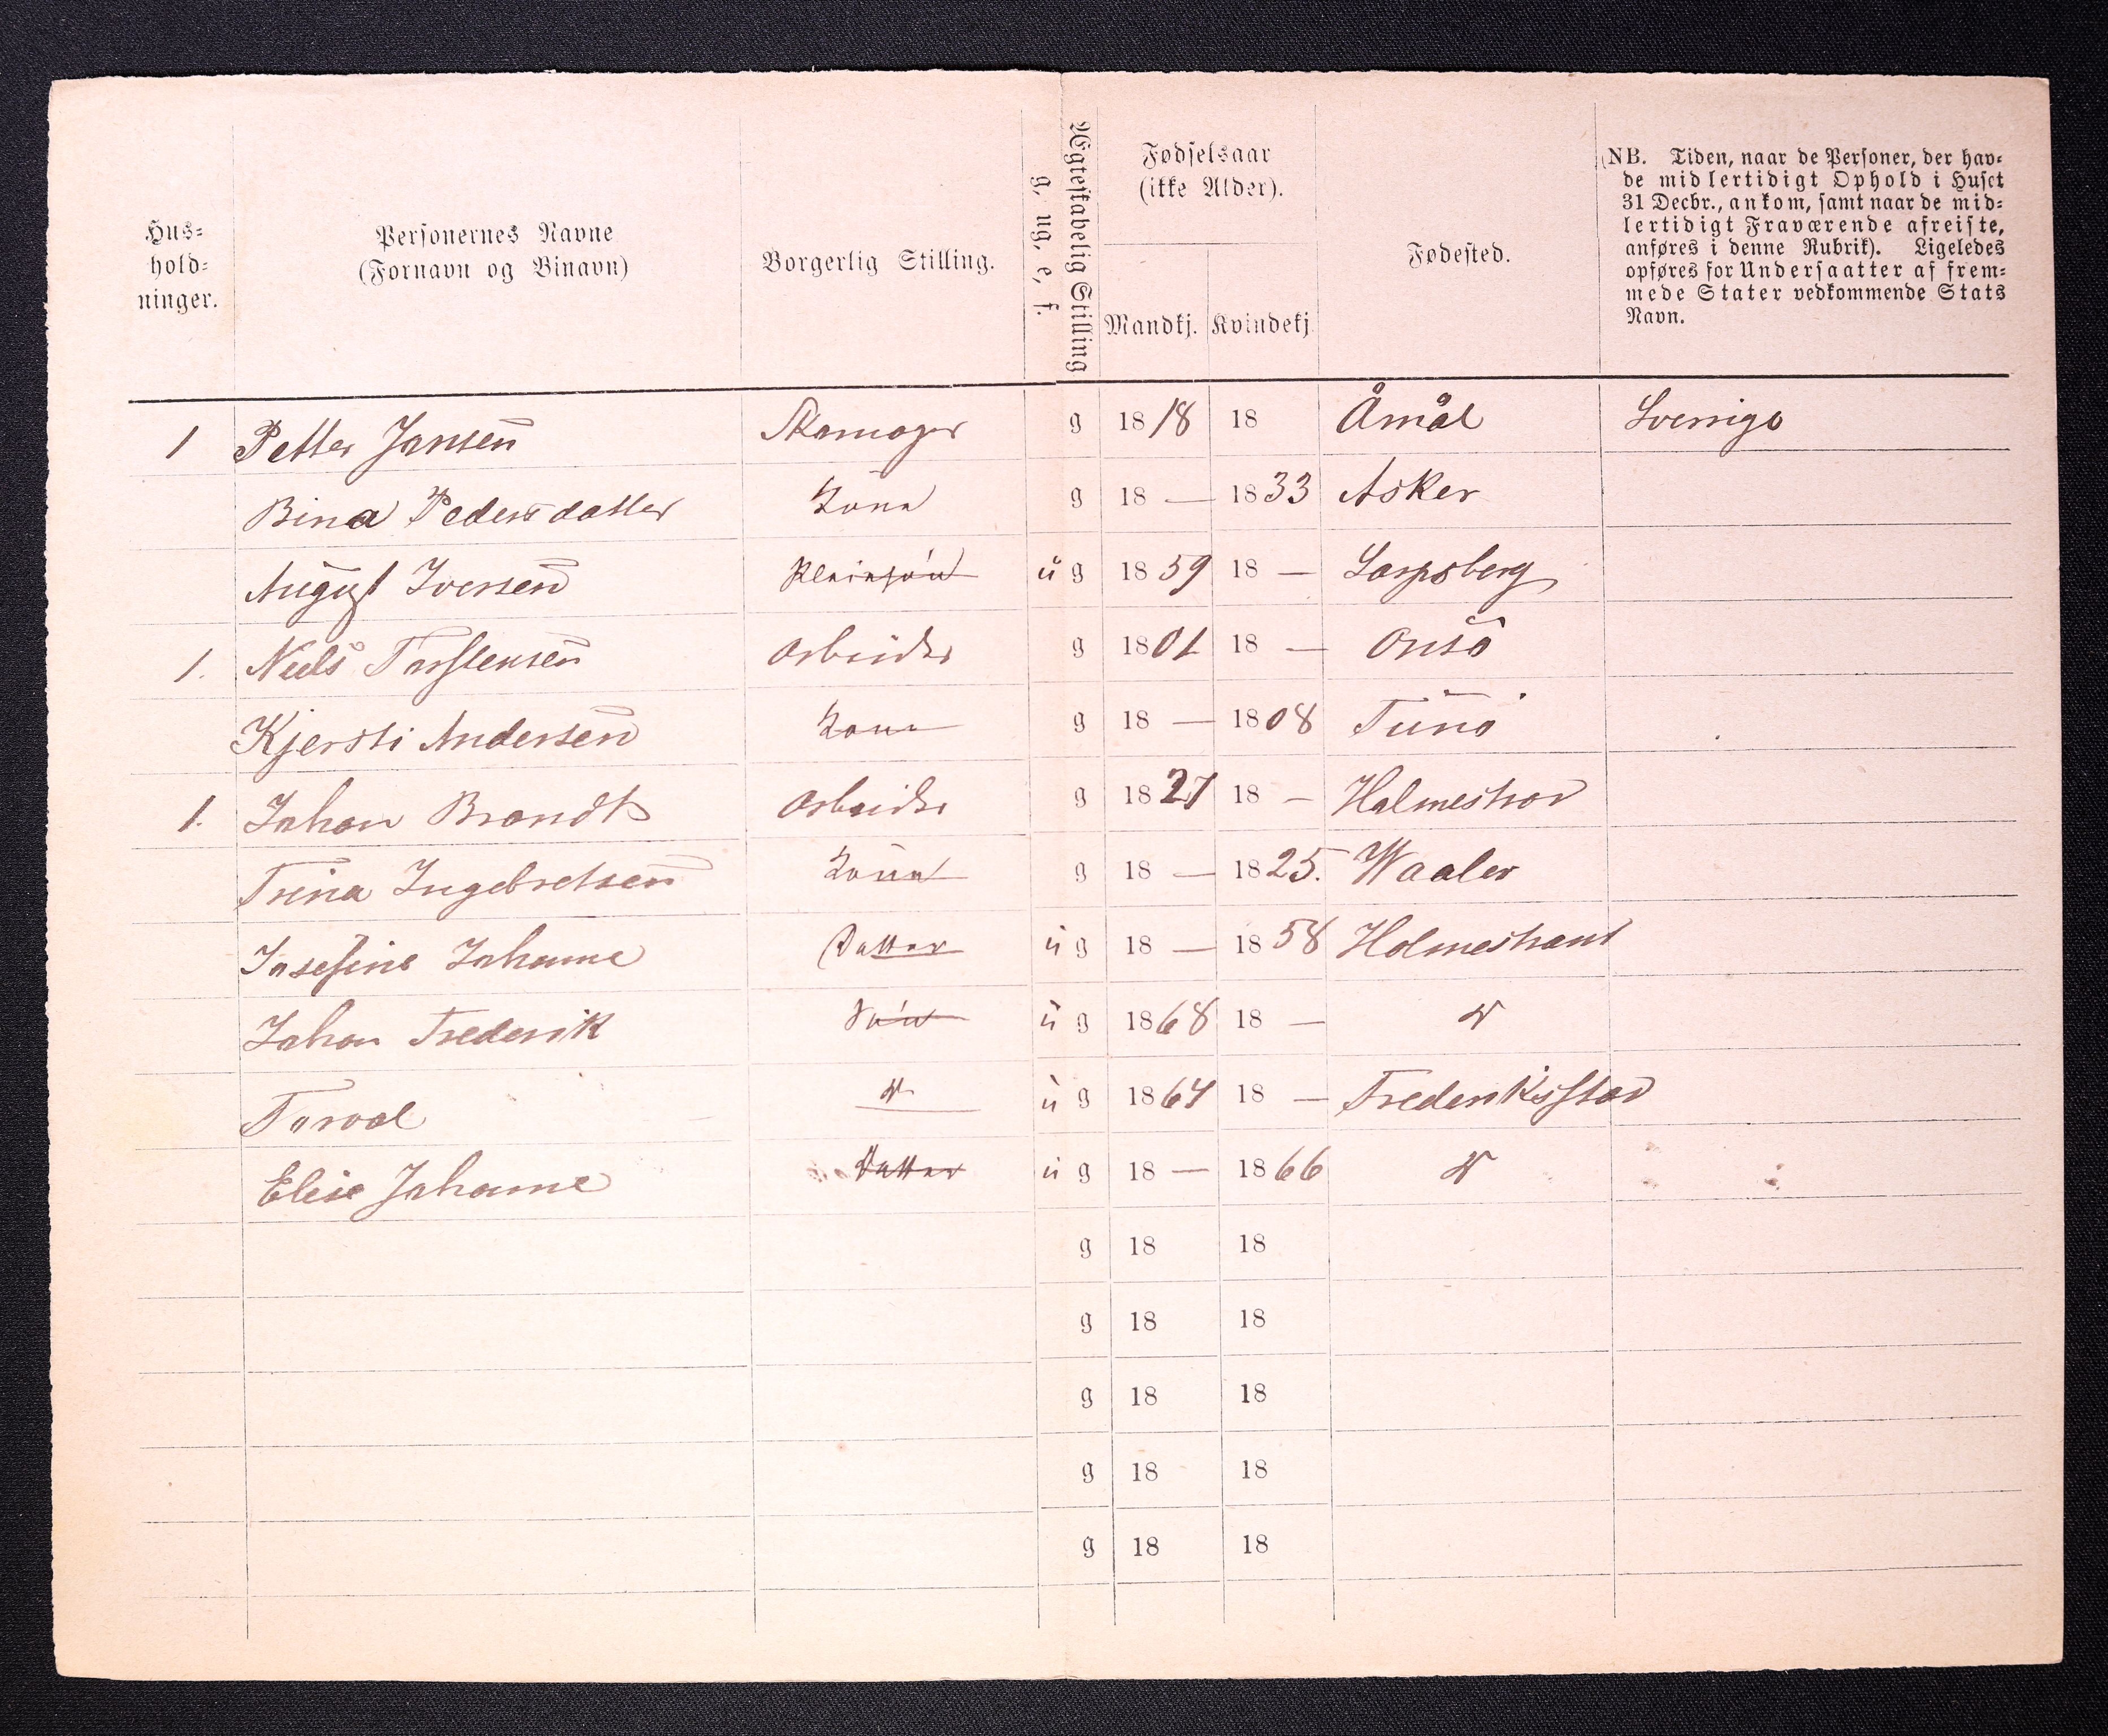 Hus-
hold-
ninger.
Personernes Navne
(Fornavn og Binavn)
Borgerlig Stilling.
Ægteskabelig Stilling
g, ug, e, f.
Fødselsaar
(ikke Alder).
Mandkj. Kvindekj
Fødested.
(NB. Tiden, naar de Personer, der hav-
de midlertidigt Ophold i Huset
31 Decbr., ankom, samt naar de mid-
lertidigt Fraværende afreiste,
anføres i denne Rubrik). Ligeledes
opføres for Undersaatter af frem-
mede Stater vedkommende Stats
Navn.
1 Petter Jansen Skomager g 1818 18 Åmål Sverrige
Bina Pedersdatter Kona g 18 — 1833 Asker
August Iversen Pleiesøn ug 1859 18 — Sarpsberg
1. Niels Torstensen Arbeider g 1801 18 — Onsø
Kjersti Andersen Kona g 18 — 1808 Tunø
1. Johan Brandt Arbeider g 1827 18 — Holmestrod
Trina Ingebretsen Kona g 18 — 1825. Waaler
Josefine Johanne Datter ug 18 — 1858 Holmestrand
Johan Frederik Søn ug 1868 18 — do
Torval do ug 1864 18 — Frederiksstad
Elise Johanne Datter ug 18 — 1866 do
g 18 18
g 18 18
g 18 18
g 18 18
g 18 18